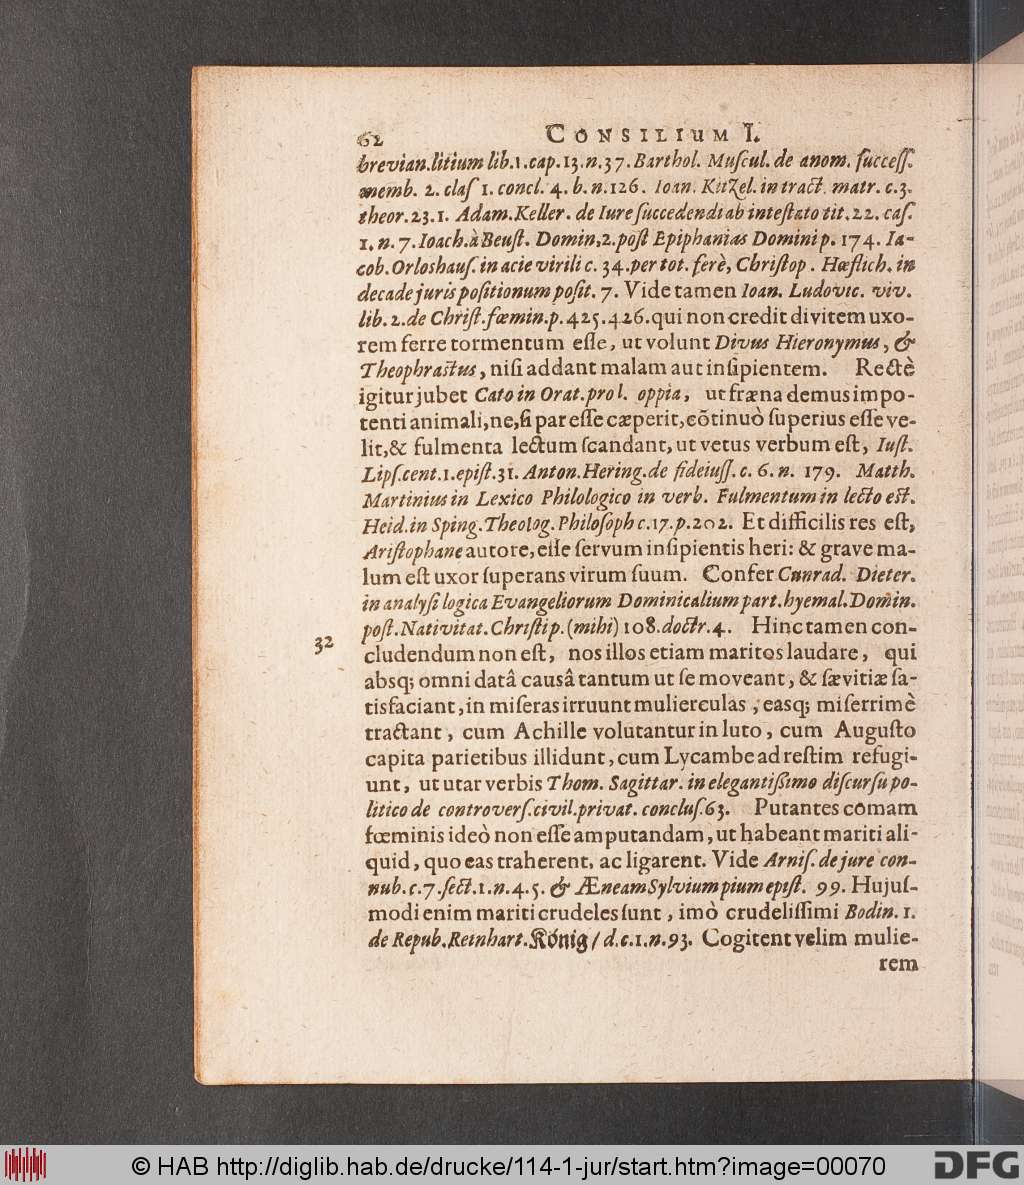 62 CONSILIUM I.
brevian.litium lib.1.cap.13.n.37. Barthol. Muſcul. de anom. ſucceſſ.
memb. 2. claſ 1. concl. 4. b. n.126. Ioan. Kitzel. in tract. matr. c.3.
theor.23.1. Adam.Keller. de Iure ſuccedendi ab inteſtato tit.22. caſ.
1. n. 7. Ioach. à Beuſt. Domin,2. poſt Epiphanias Domini p. 174. Ia-
cob. Orloshauſ. in acie virili c. 34. per tot. ferè, Chriſtop. Hœflich. in
decade juris poſitionum poſit. 7. Vide tamen Ioan. Ludovic. viv.
lib. 2. de Chriſt. fœmin. p. 425. 426. qui non credit divitem uxo-
rem ferre tormentum eſſe, ut volunt Divus Hieronymus, &
Theophraſtus, niſi addant malam aut inſipientem. Rectè
igitur jubet Cato in Orat. pro l. oppia, ut fræna demus impo-
tenti animali, ne, ſi par eſſe cæperit, cõtinuò ſuperius eſſe ve-
lit, & fulmenta lectum ſcandant, ut vetus verbum eſt, Iuſt.
Lipſ. cent. 1. epiſt. 31. Anton. Hering. de fideiuſſ. c. 6. n. 179. Matth.
Martinius in Lexico Philologico in verb. Fulmentum in lecto eſt.
Heid. in Sping. Theolog. Philoſoph c. 17. p. 202. Et difficilis res eſt,
Ariſtophane autore, eſſe ſervum inſipientis heri: & grave ma-
lum eſt uxor ſuperans virum ſuum. Confer Cunrad. Dieter.
in analyſi logica Evangeliorum Dominicalium part. hyemal. Domin.
poſt. Nativitat. Chriſti p. (mihi) 108. doctr. 4. Hinc tamen con-
32 cludendum non eſt, nos illos etiam maritos laudare, qui
absq; omni datâ causâ tantum ut ſe moveant, & ſævitiæ ſa-
tisfaciant, in miſeras irruunt mulierculas, easq; miſerrimè
tractant, cum Achille volutantur in luto, cum Auguſto
capita parietibus illidunt, cum Lycambe ad reſtim refugi-
unt, ut utar verbis Thom. Sagittar. in elegantiſſimo diſcurſu po-
litico de controverſ. civil. privat. concluſ. 63. Putantes comam
fœminis ideò non eſſe amputandam, ut habeant mariti ali-
quid, quo eas traherent, ac ligarent. Vide Arniſ. de jure con-
nub. c. 7. ſect. 1. n. 4. 5. & Æneam Sylvium pium epiſt. 99. Hujuſ-
modi enim mariti crudeles ſunt, imò crudeliſſimi Bodin. 1.
de Repub. Reinhart. König / d. c. 1. n. 93. Cogitent velim mulie-
rem
© HAB http://diglib.hab.de/drucke/114-1-jur/start.htm?image=00070
DFG